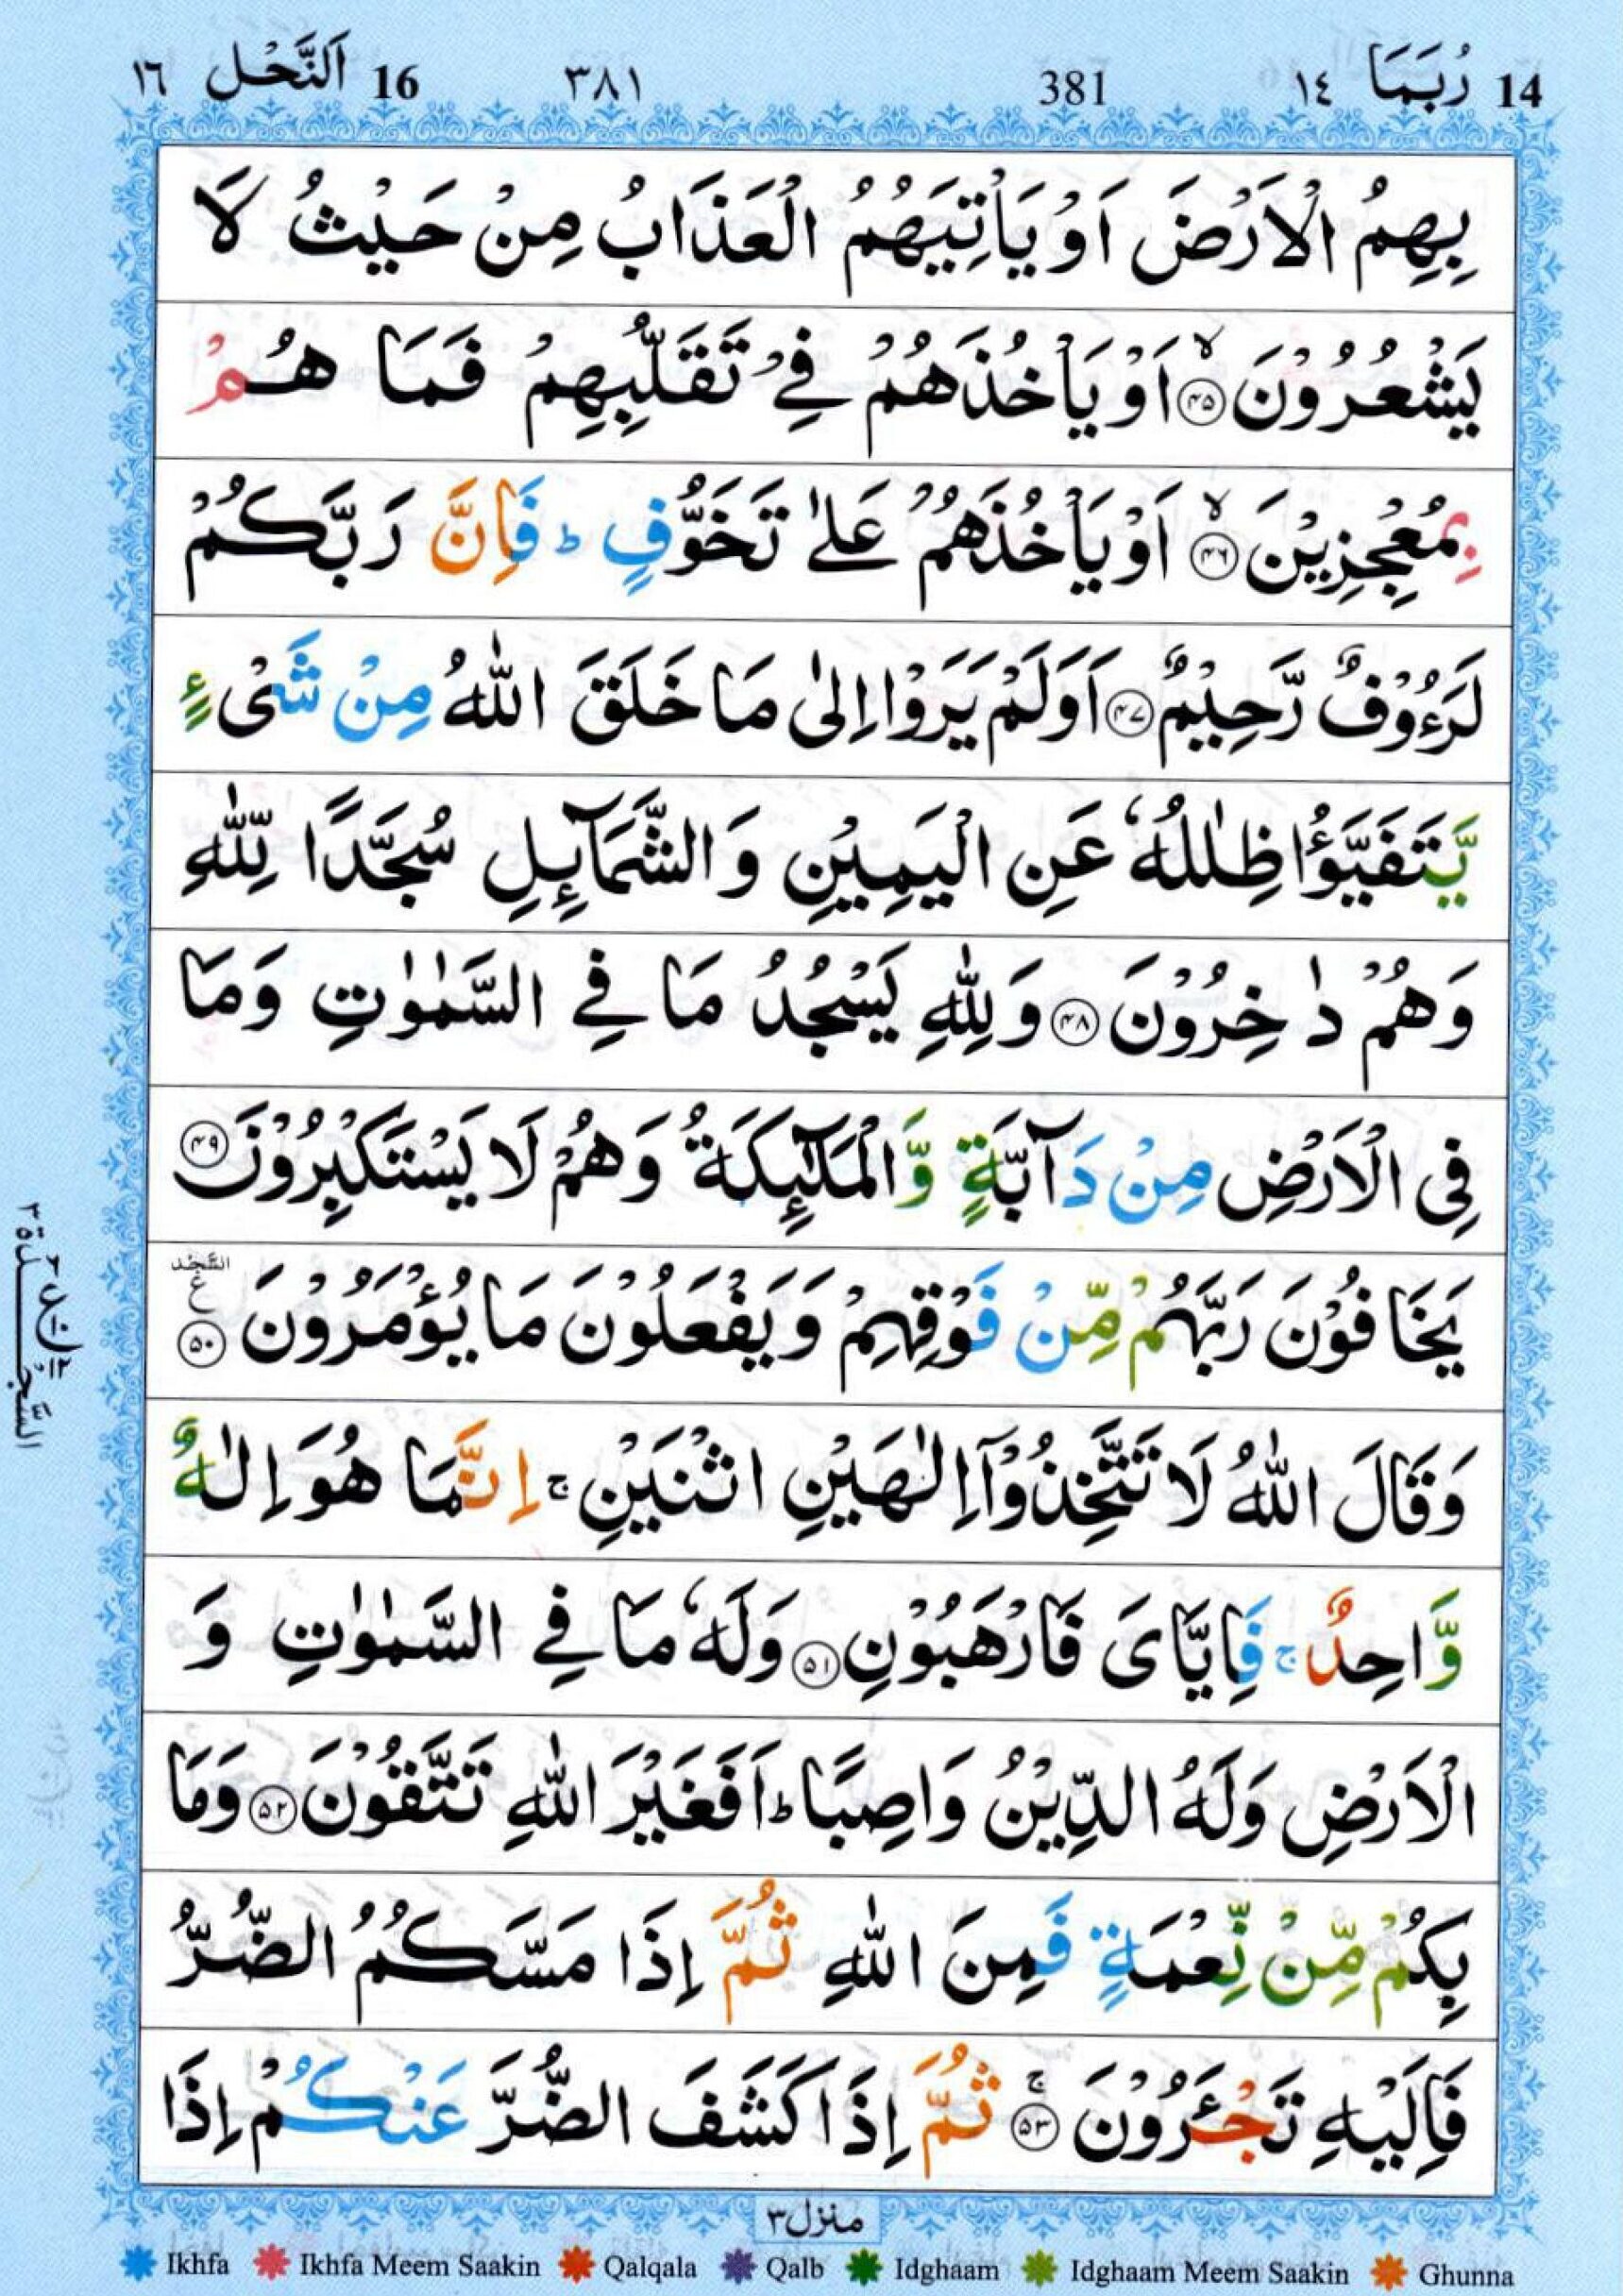 14 رُبَمَا ١٤ 381 ٣٨١ 16 اَلنَّحْل ١٦
بِهِمُ الْاَرْضَ اَوْ يَاْتِيَهُمُ الْعَذَابُ مِنْ حَيْثُ لَا
يَشْعُرُوْنَ ۙ﴿۴۵﴾ اَوْ يَاْخُذَهُمْ فِيْ تَقَلُّبِهِمْ فَمَا هُمْ
بِمُعْجِزِيْنَ ۙ﴿۴۶﴾ اَوْ يَاْخُذَهُمْ عَلٰى تَخَوُّفٍ ؕ فَاِنَّ رَبَّكُمْ
لَرَءُوْفٌ رَّحِيْمٌ ﴿۴۷﴾ اَوَلَمْ يَرَوْا اِلٰى مَا خَلَقَ اللّٰهُ مِنْ شَیْءٍ
يَّتَفَيَّؤُا ظِلٰلُهٗ عَنِ الْيَمِيْنِ وَالشَّمَآئِلِ سُجَّدًا لِّلّٰهِ
وَهُمْ دٰخِرُوْنَ ﴿۴۸﴾ وَلِلّٰهِ يَسْجُدُ مَا فِي السَّمٰوٰتِ وَمَا
فِى الْاَرْضِ مِنْ دَآبَّةٍ وَّالْمَلٰٓئِكَةُ وَهُمْ لَا يَسْتَكْبِرُوْنَ ﴿۴۹﴾
يَخَافُوْنَ رَبَّهُمْ مِّنْ فَوْقِهِمْ وَيَفْعَلُوْنَ مَا يُؤْمَرُوْنَ ﴿۵۰﴾
وَقَالَ اللّٰهُ لَا تَتَّخِذُوْۤا اِلٰهَيْنِ اثْنَيْنِ ۚ اِنَّمَا هُوَ اِلٰهٌ
وَّاحِدٌ ۚ فَاِيَّاىَ فَارْهَبُوْنِ ﴿۵۱﴾ وَلَهٗ مَا فِي السَّمٰوٰتِ وَ
الْاَرْضِ وَلَهُ الدِّيْنُ وَاصِبًا ؕ اَفَغَيْرَ اللّٰهِ تَتَّقُوْنَ ﴿۵۲﴾ وَمَا
بِكُمْ مِّنْ نِّعْمَةٍ فَمِنَ اللّٰهِ ثُمَّ اِذَا مَسَّكُمُ الضُّرُّ
فَاِلَيْهِ تَجْئَرُوْنَ ۚ﴿۵۳﴾ ثُمَّ اِذَا كَشَفَ الضُّرَّ عَنْكُمْ اِذَا
منزل ٣
Ikhfa Ikhfa Meem Saakin Qalqala Qalb Idghaam Idghaam Meem Saakin Ghunna